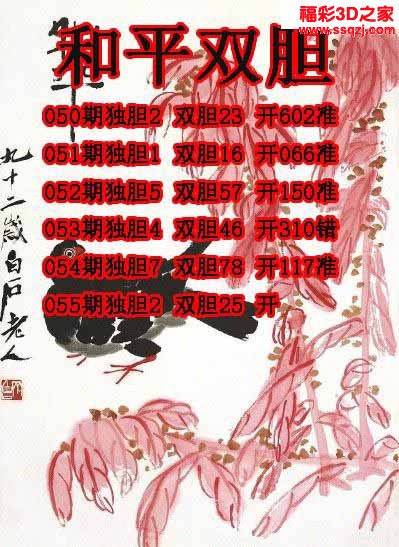 福彩3D之家
www.ssqzj.com
和平
和平双胆
050期独胆2 双胆23 开602准
051期独胆1 双胆16 开066准
052期独胆5 双胆57 开150准
053期独胆4 双胆46 开310错
054期独胆7 双胆78 开117准
055期独胆2 双胆25 开
九十二岁白石老人